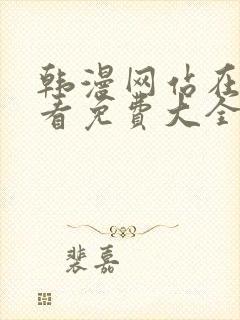 韩漫网站在
看免费大全
裴嘉